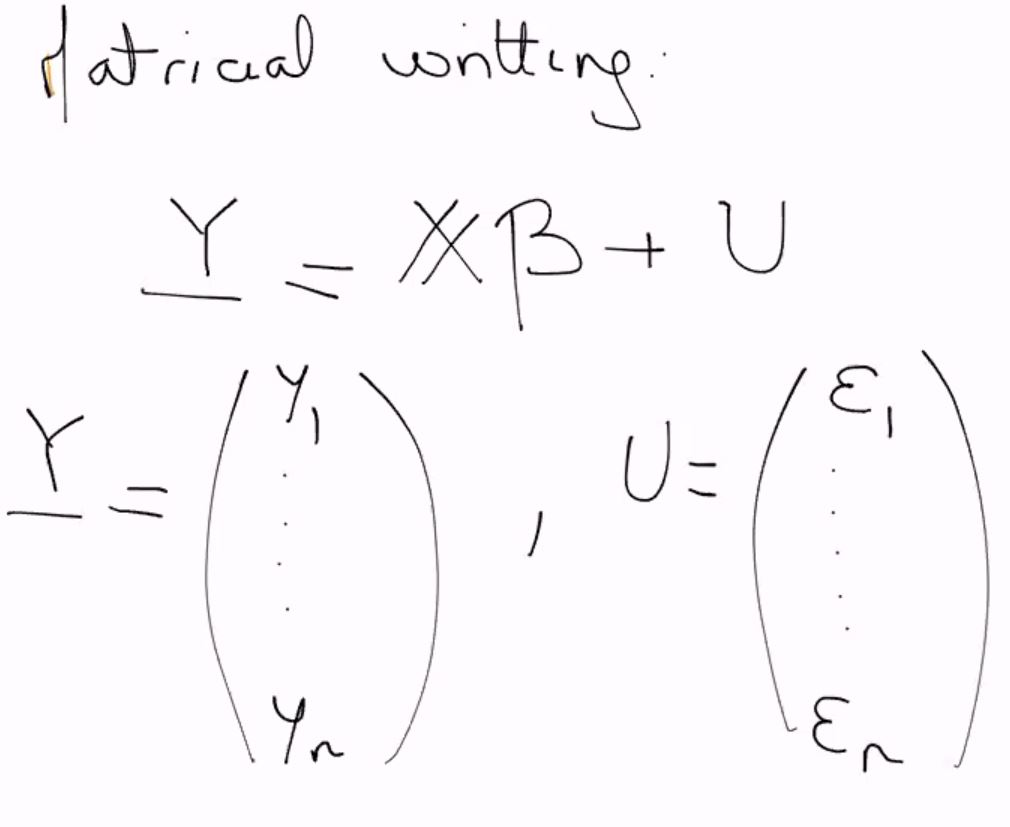 Matricial writting:
Y = 𝕏β + U
Y = (Y₁ . . . . Yₙ) , U = (ε₁ . . . . . εₙ)